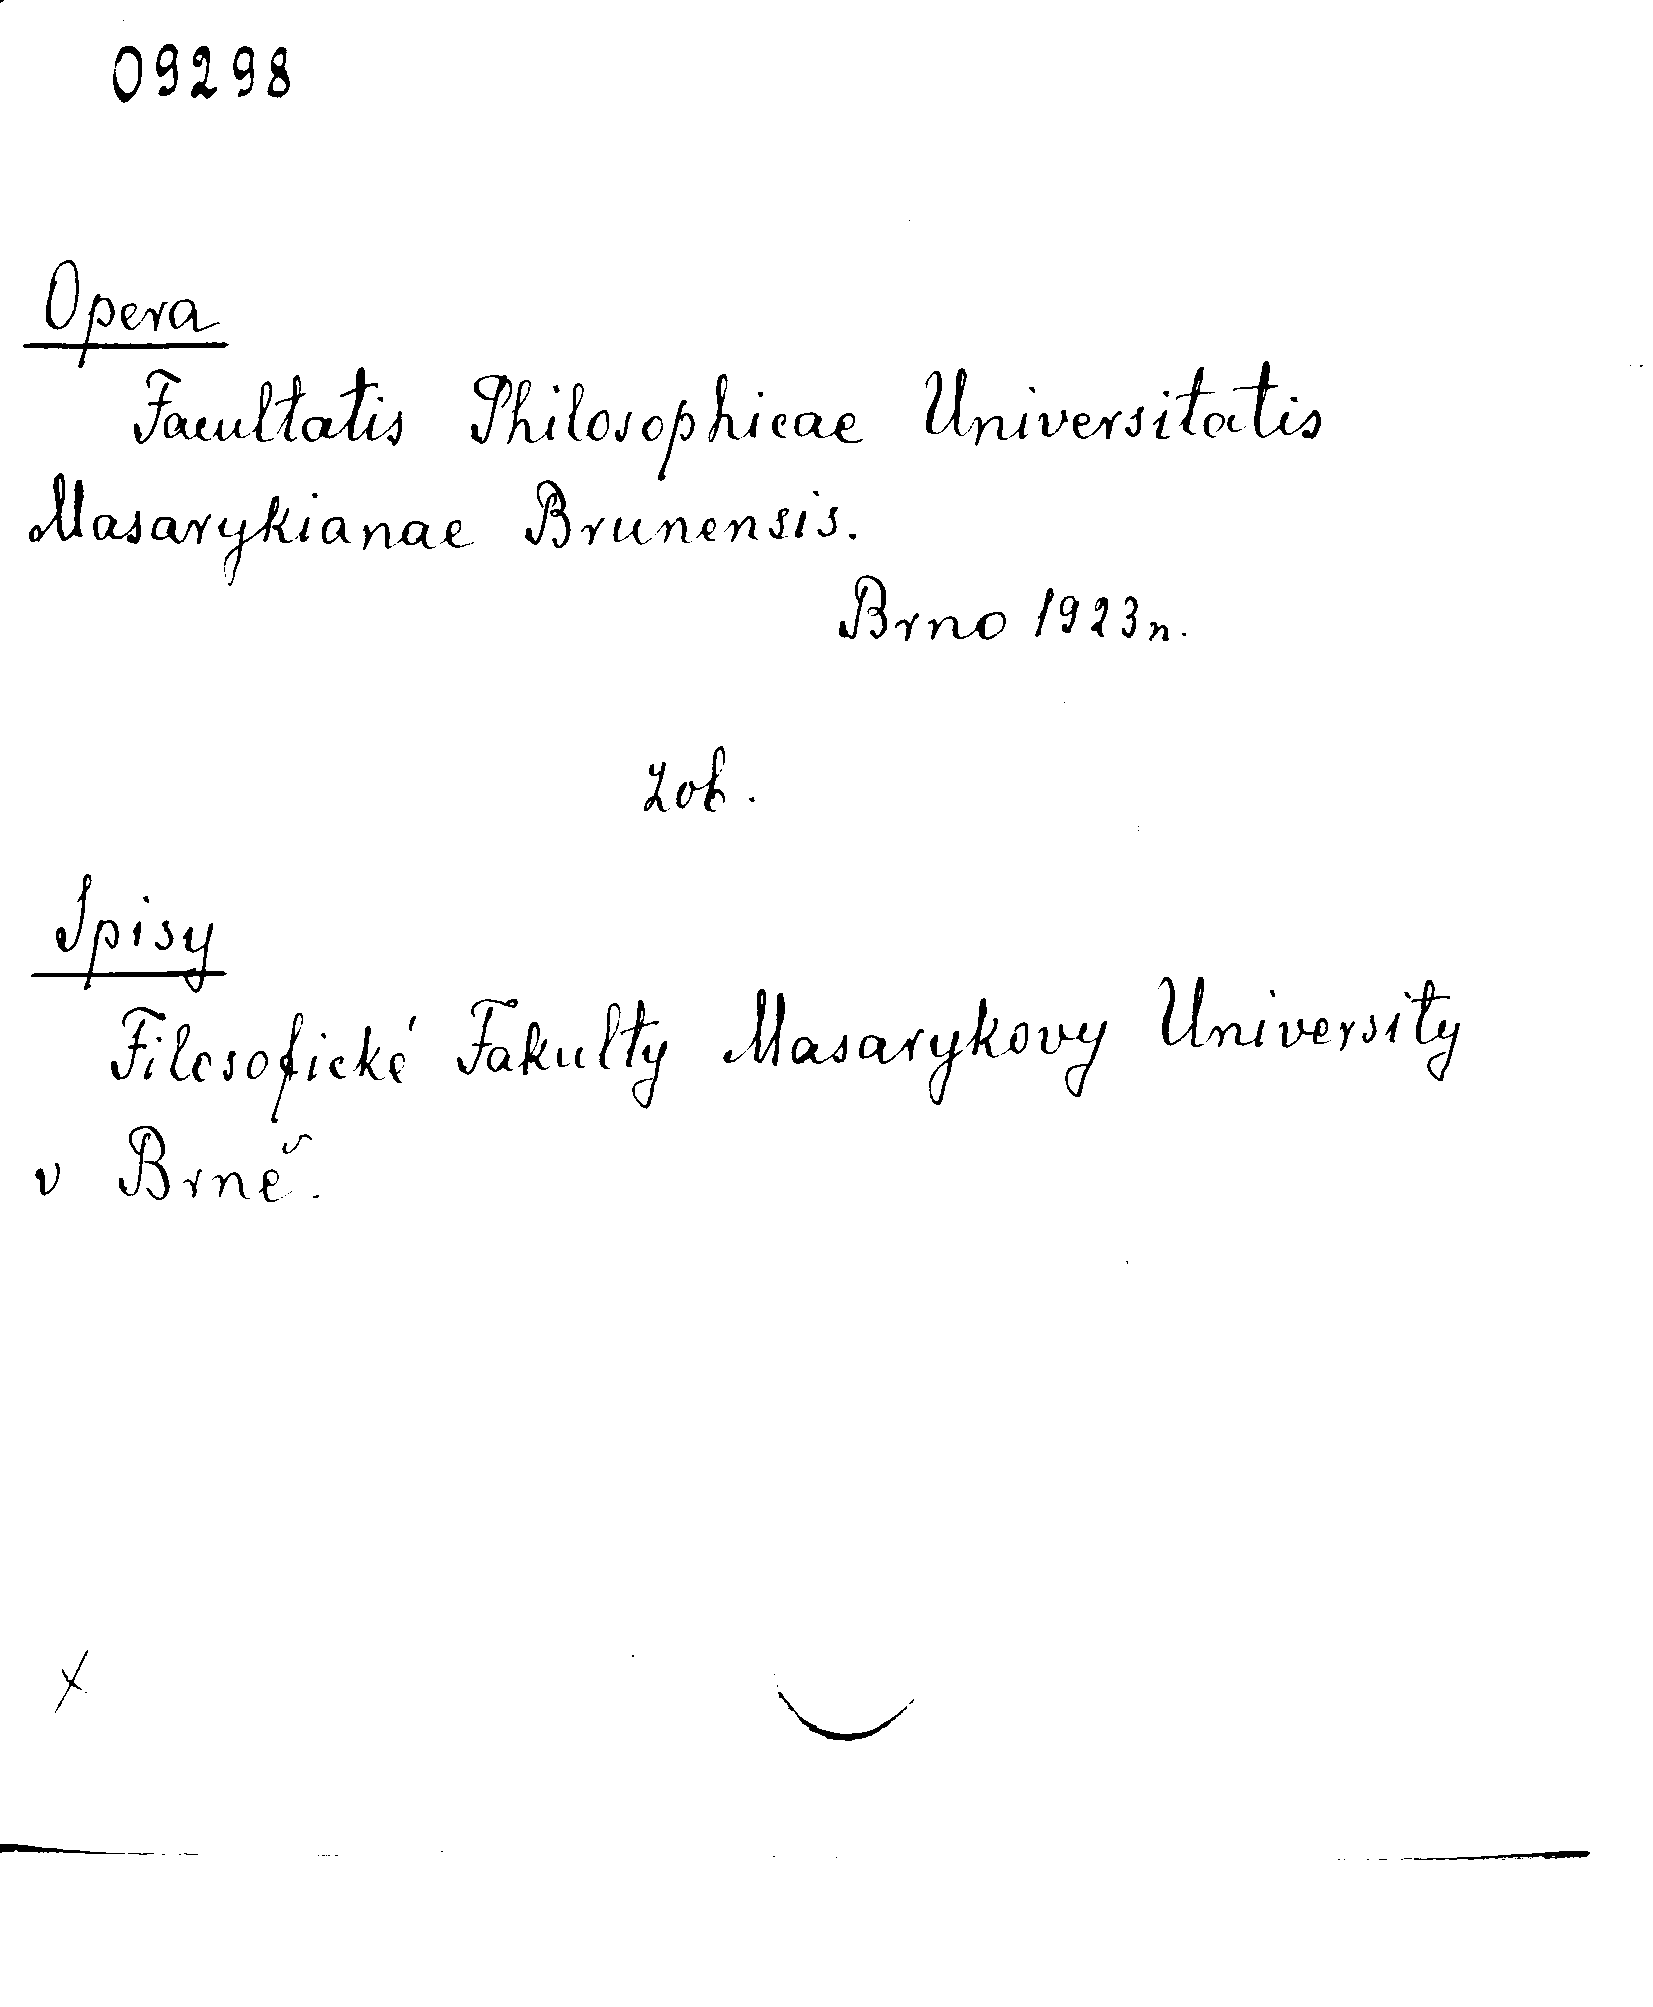 09298
Opera
Facultatis Philosophicae Universitatis
Masarykianae Brunensis.
Brno 1923 n.
zob.
Spisy
Filosofické Fakulty Masarykovy University
v Brně.
x